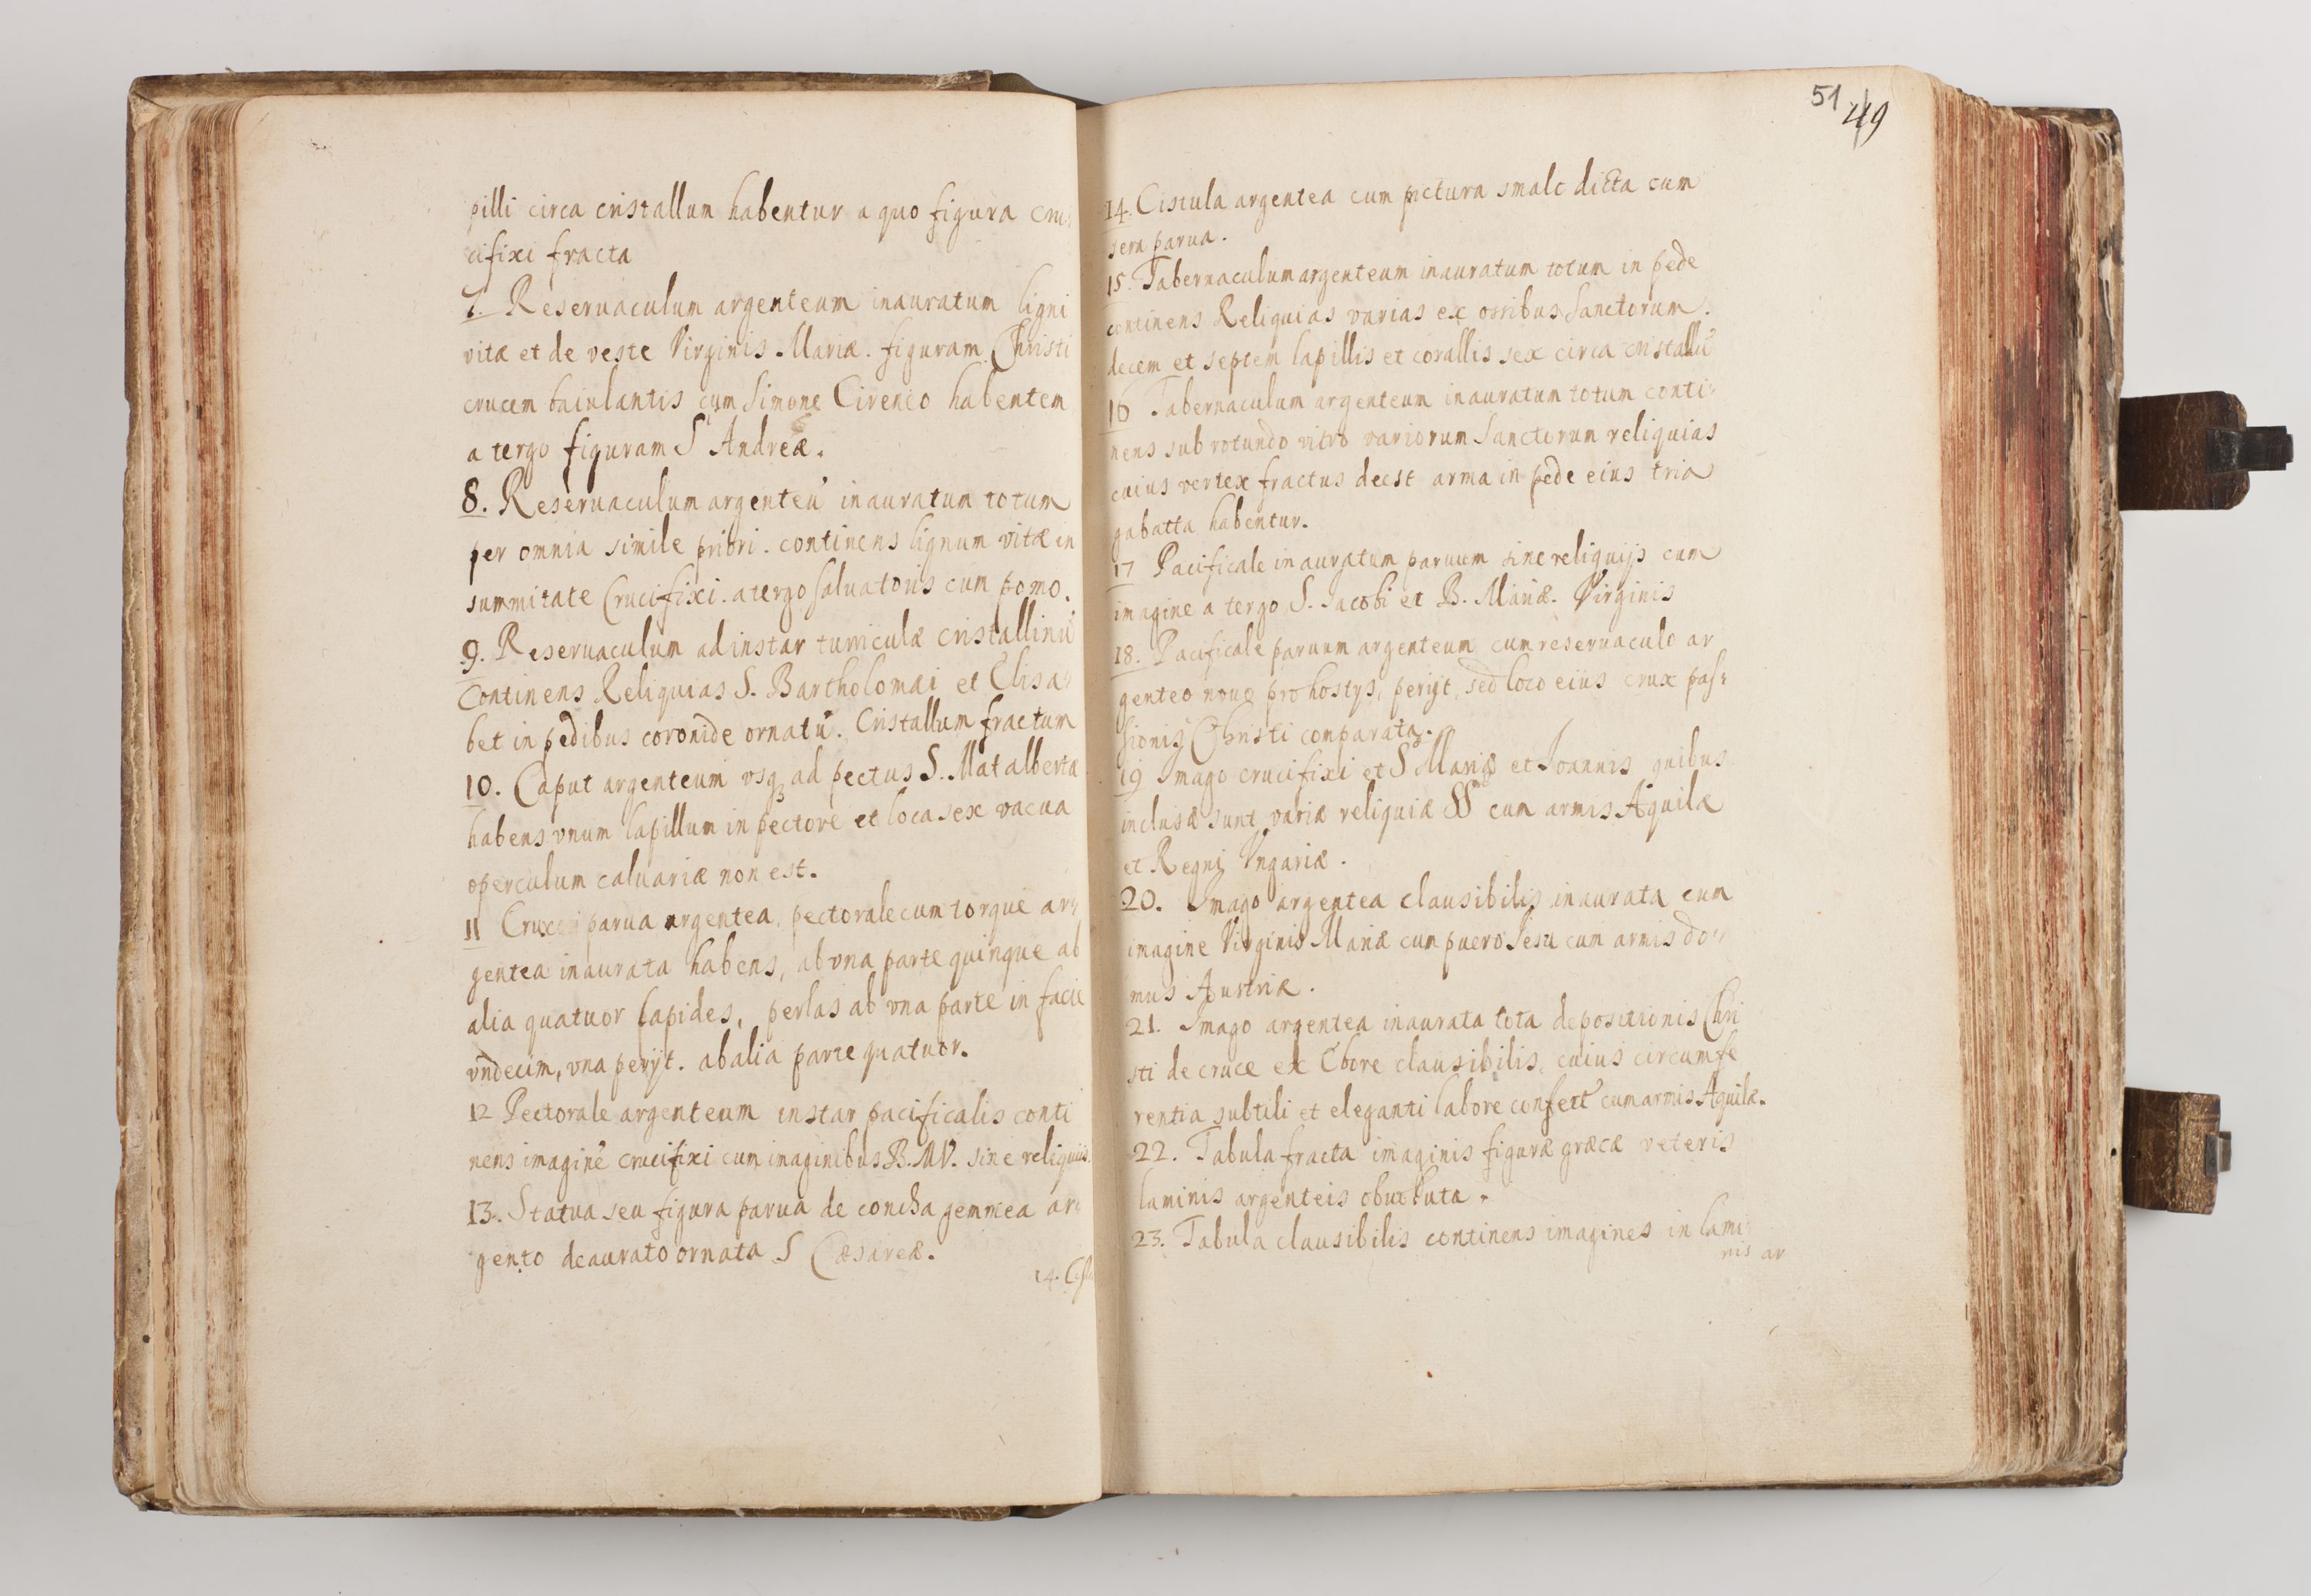 pilli circa cristallum habentur a quo figura cru
cifixi fracta
7. Reseruaculum argenteum inauratum ligni
vitæ et de veste Virginis Mariæ. figuram Christi
crucem baiulantis cum Simone Cireneo habentem
a tergo figuram S Andreæ.
8. Reseruaculum argenteū inauratum totum
per omnia simile priori. continens lignum vitæ in
summitate Crucifixi. a tergo saluatoris cum pomo.
9. Reseruaculum ad instar turriculæ cristallinū
Continens Reliquias S. Bartholomæi et Elisa-
bet in pedibus coronide ornatū. Cristallum fractum
10. Caput argenteum vsq ad pectus S. Mat alberta
habens vnum lapillum in pectore et loca sex vacua
operculum caluariæ non est.
11 Crux parua argentea, pectorale cum torque ar-
gentea inaurata habens, ab vna parte quinque ab
alia quatuor lapides, perlas ab vna parte in facie
vndecim, vna perijt. ab alia parte quatuor.
12 Pectorale argenteum instar pacificalis conti
nens imaginē crucifixi cum imaginibus B. M V. sine reliquiis.
13. Statua seu figura parua de concha gemmea ar-
gento deaurato ornata S Cæsareæ.
14. Cistu
51 49
14. Cistula argentea cum pictura smalc dicta cum
sera parua.
15. Tabernaculum argenteum inauratum totum in pede
continens Reliquias varias ex ossibus Sanctorum.
decem et septem lapillis et corallis sex circa cristallū
16 Tabernaculum argenteum inauratum totum conti-
nens sub rotundo vitro variorum Sanctorum reliquias
cuius vertex fractus deest arma in pede eius tria
gabatta habentur.
17 Pacificale inauratum paruum sine reliquijs cum
imagine a tergo S. Jacobi et B. Mariæ. Virginis
18. Pacificale paruum argenteum cum reseruaculo ar
genteo nouo pro hostijs, perijt, sed loco eius crux pas-
sionis Christi comparata.
19 Imago crucifixi et S Mariæ et Joannis quibus
inclusæ sunt variæ reliquiæ SS cum armis Aquilæ
et Regni Vngariæ.
20. Imago argentea clausibilis inaurata cum
imagine Virginis Mariæ cum puero Jesu cum armis do-
mus Austriæ.
21. Imago argentea inaurata tota depositionis Chri
sti de cruce ex Ebore clausibilis, cuius circumfe
rentia subtili et eleganti labore confect cum armis Aquilæ.
22. Tabula fracta imaginis figuræ græcæ veteris
laminis argenteis obuoluta.
23. Tabula clausibilis continens imagines in lami
nis ar